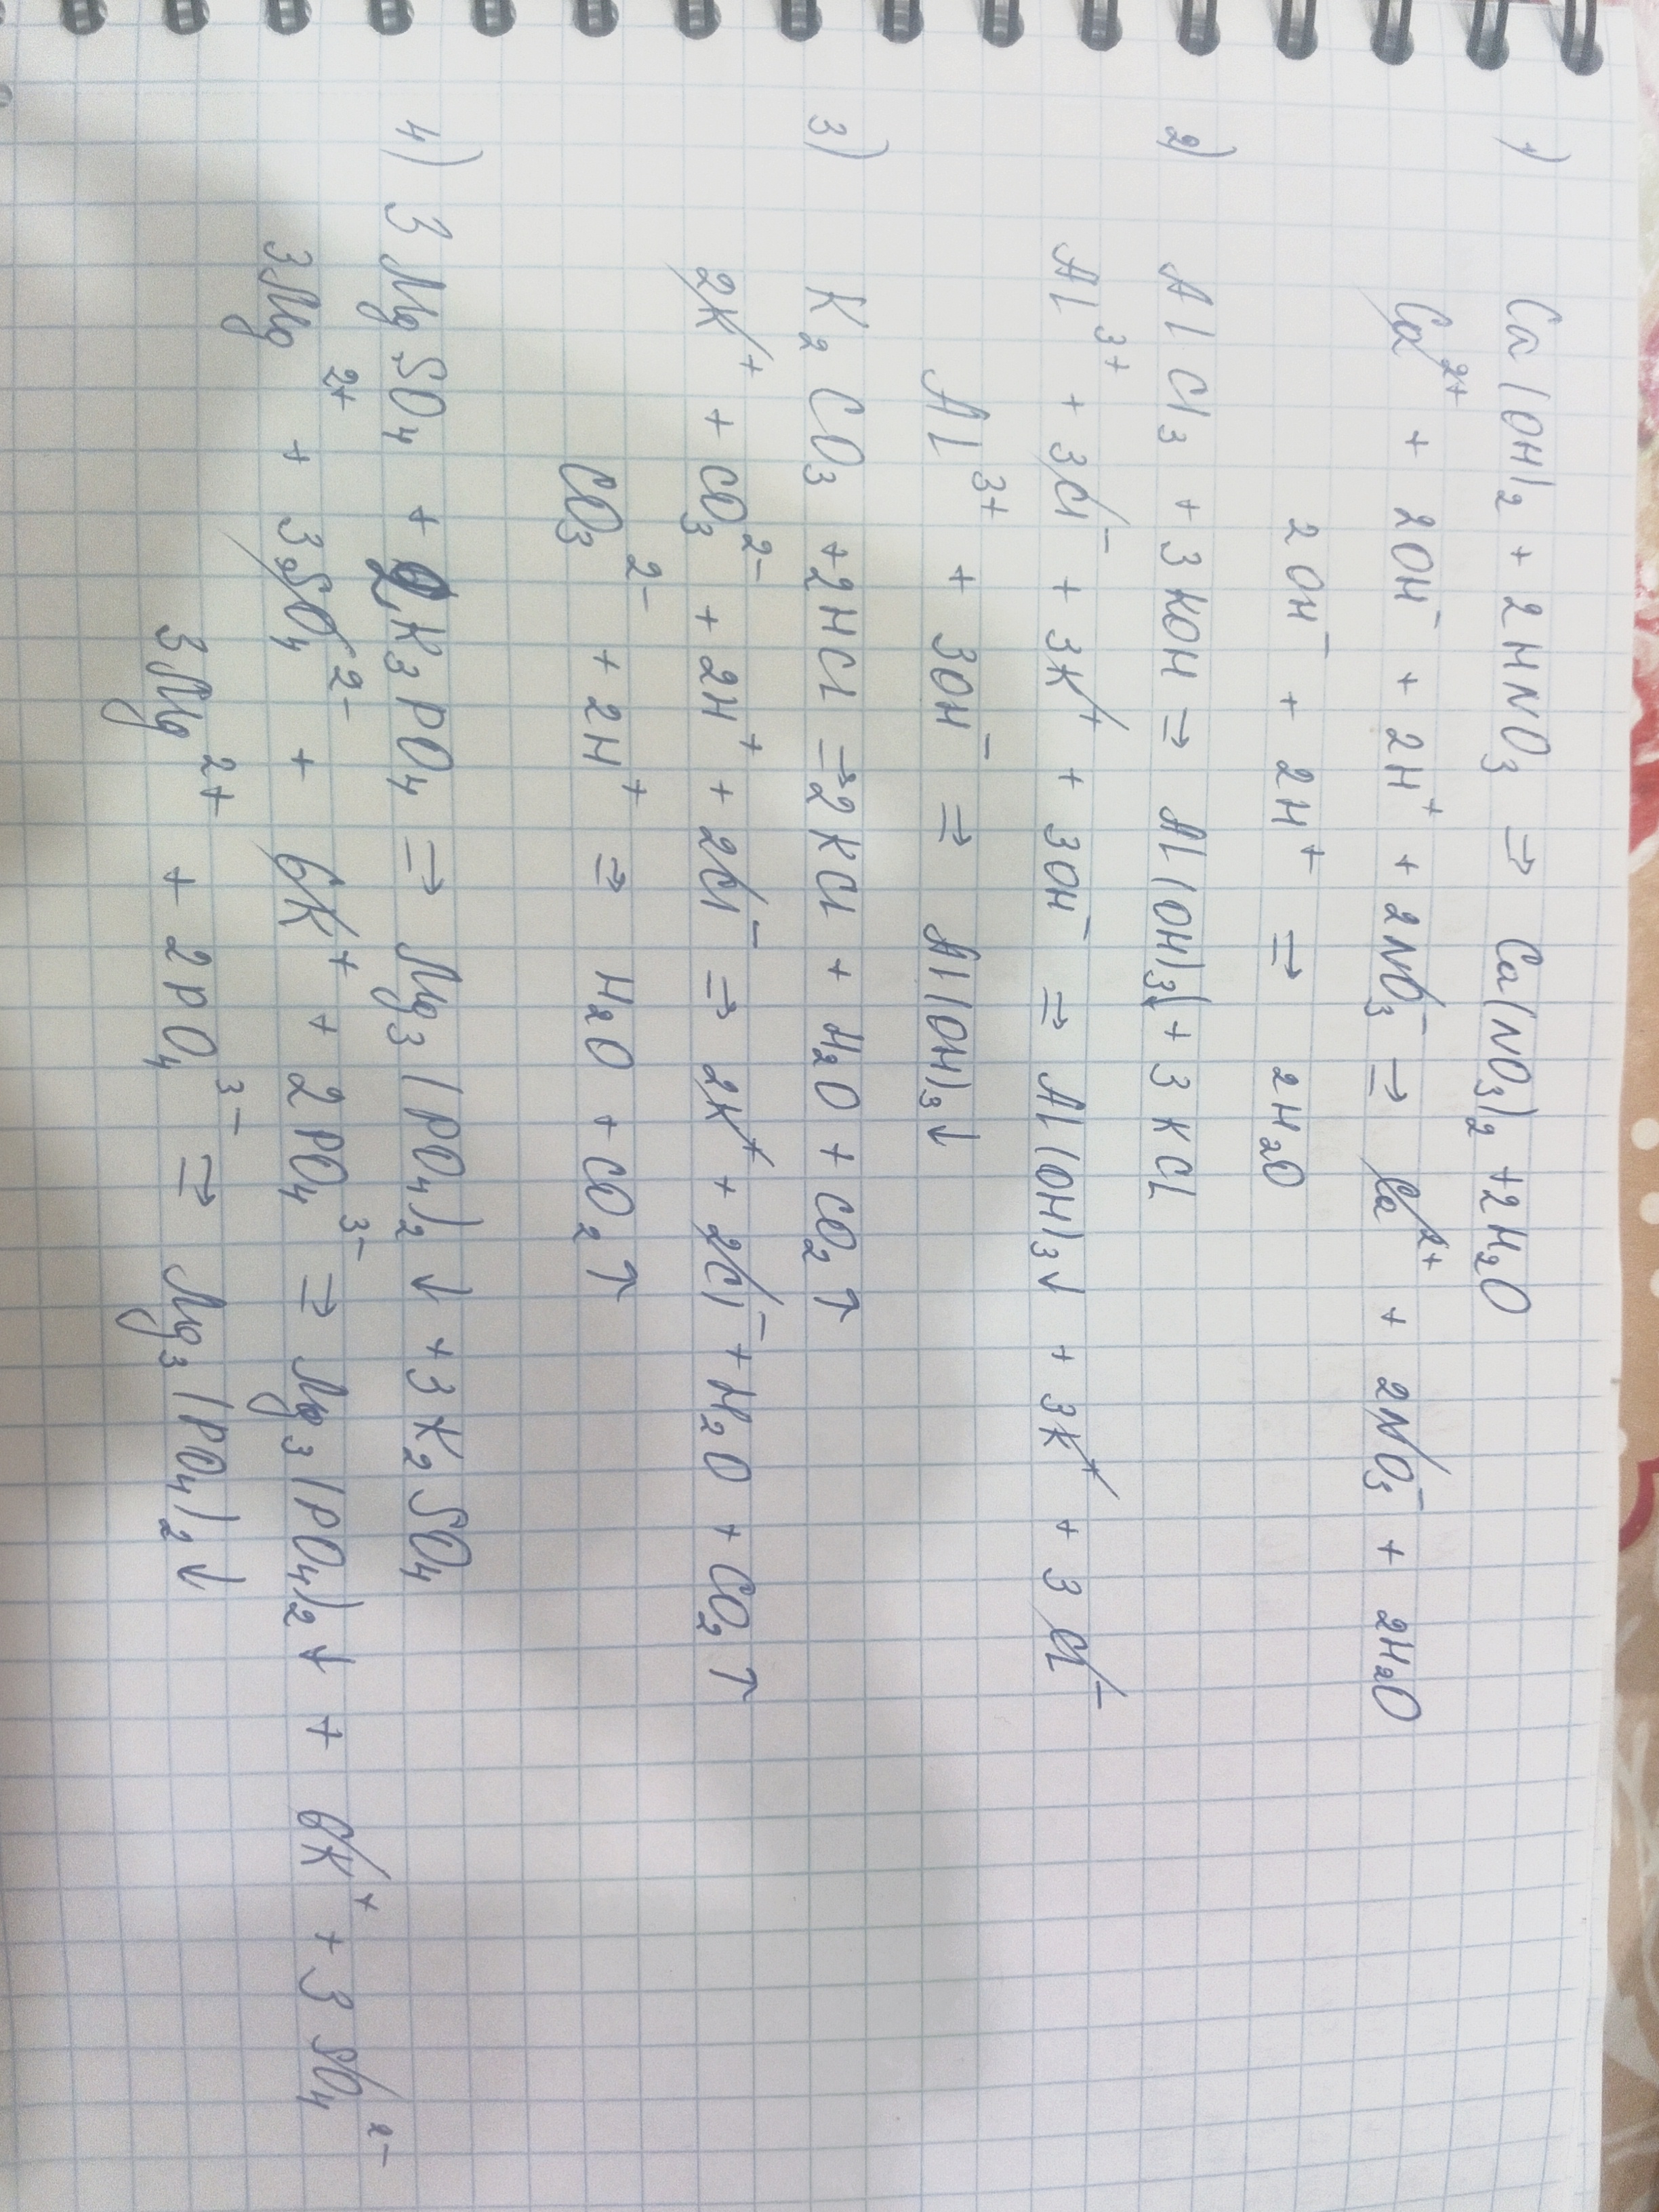 1) Ca(OH)₂ + 2HNO₃ ⇒ Ca(NO₃)₂ + 2H₂O
Ca²⁺ + 2OH⁻ + 2H⁺ + 2NO₃⁻ ⇒ Ca²⁺ + 2NO₃⁻ + 2H₂O
2OH⁻ + 2H⁺ ⇒ 2H₂O
2) AlCl₃ + 3KOH ⇒ Al(OH)₃↓ + 3KCl
Al³⁺ + 3Cl⁻ + 3K⁺ + 3OH⁻ ⇒ Al(OH)₃↓ + 3K⁺ + 3Cl⁻
Al³⁺ + 3OH⁻ ⇒ Al(OH)₃↓
3) K₂CO₃ + 2HCl ⇒ 2KCl + H₂O + CO₂↑
2K⁺ + CO₃²⁻ + 2H⁺ + 2Cl⁻ ⇒ 2K⁺ + 2Cl⁻ + H₂O + CO₂↑
CO₃²⁻ + 2H⁺ ⇒ H₂O + CO₂↑
4) 3MgSO₄ + 2K₃PO₄ ⇒ Mg₃(PO₄)₂↓ + 3K₂SO₄
3Mg²⁺ + 3SO₄²⁻ + 6K⁺ + 2PO₄³⁻ ⇒ Mg₃(PO₄)₂↓ + 6K⁺ + 3SO₄²⁻
3Mg²⁺ + 2PO₄³⁻ ⇒ Mg₃(PO₄)₂↓